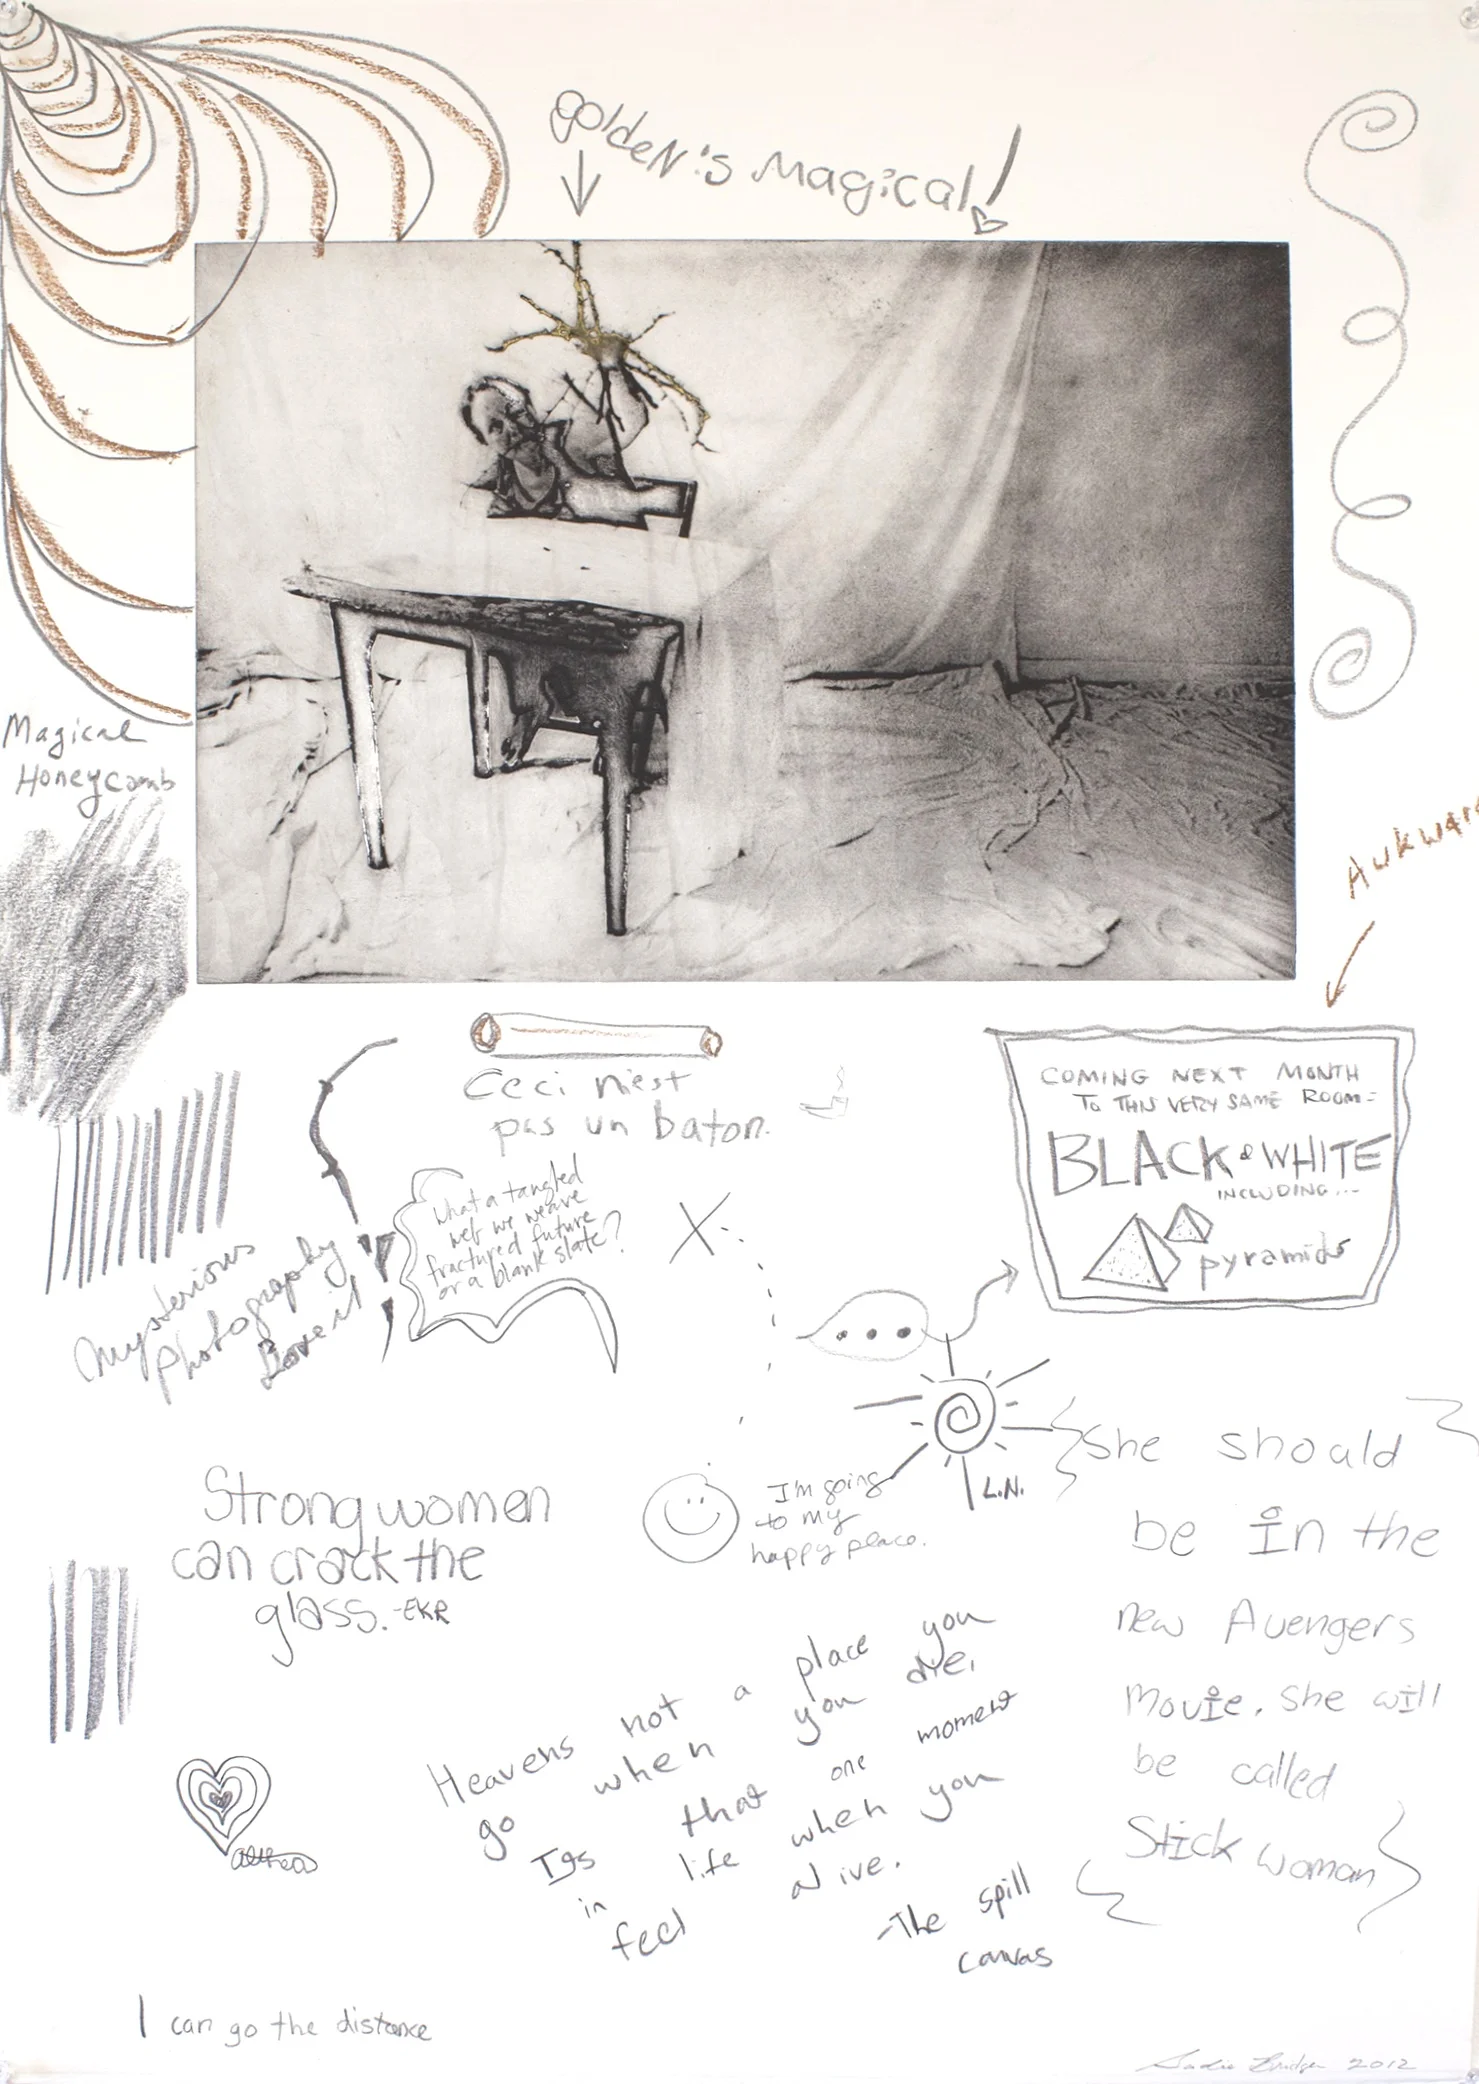 golden's magical!
Magical
Honeycomb
Awkward
Ceci n'est
pas un baton.
COMING NEXT MONTH
TO THIS VERY SAME ROOM-
BLACK & WHITE
INCLUDING...
pyramids
What a tangled
web we weave
fractured future
or a blank slate?
X
Mysterious
photography
Love it
...
L.N.
I'm going
to my
happy place.
Strong women
can crack the
glass. -EKR
She should
be in the
new Avengers
Movie. She will
be called
Stick woman
Heavens not a place you
go when you die,
Its that one moment
in life when you
feel alive.
-The spill
canvas
althea
I can go the distance
2012